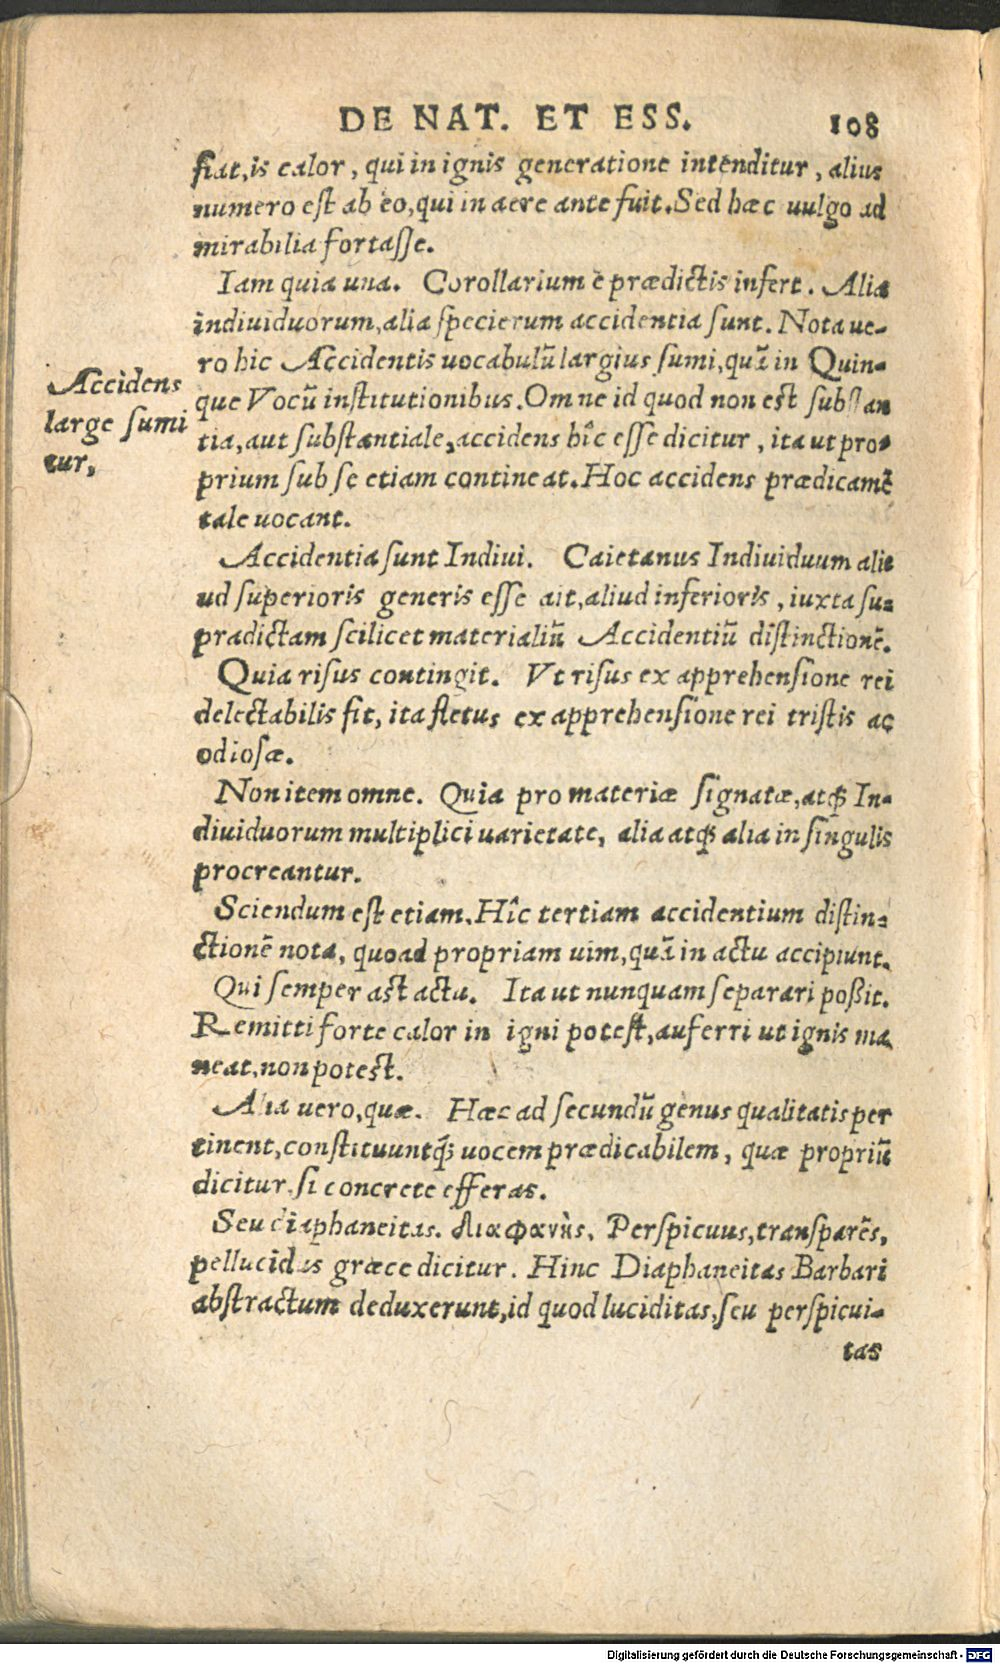 DE NAT. ET ESS. 108
fiat, is calor, qui in ignis generatione intenditur, alius
numero est ab eo, qui in aere ante fuit. Sed hæc uulgo ad
mirabilia fortasse.
Iam quia una. Corollarium è prædictis infert. Alia
indiuiduorum, alia specierum accidentia sunt. Nota ue-
ro hic Accidentis uocabulũ largius sumi, quã in Quin-
que Vocũ institutionibus. Omne id quod non est substan
tia, aut substantiale, accidens hîc esse dicitur, ita ut pro-
prium sub se etiam contineat. Hoc accidens prædicamẽ
tale uocant.
Accidens
large sumi
tur,
Accidentia sunt Indiui. Caietanus Indiuiduum ali
ud superioris generis esse ait, aliud inferioris, iuxta su-
pradictam scilicet materialiũ Accidentiũ distinctionẽ.
Quia risus contingit. Vt risus ex apprehensione rei
delectabilis fit, ita fletus ex apprehensione rei tristis ac
odiosæ.
Non item omne. Quia pro materiæ signatæ, atq; In-
diuiduorum multiplici uarietate, alia atq; alia in singulis
procreantur.
Sciendum est etiam. Hîc tertiam accidentium distin-
ctionẽ nota, quoad propriam uim, quã in actu accipiunt.
Qui semper ast actu. Ita ut nunquam separari poßit.
Remitti forte calor in igni potest, auferri ut ignis ma
neat, non potest.
Alia uero, quæ. Hæc ad secundũ genus qualitatis per
tinent, constituuntq; uocem prædicabilem, quæ propriũ
dicitur, si concrete efferas.
Seu diaphaneitas. Διαφανὴς. Perspicuus, transparẽs,
pellucidus græce dicitur. Hinc Diaphaneitas Barbari
abstractum deduxerunt, id quod luciditas, seu perspicui-
tas
Digitalisierung gefördert durch die Deutsche Forschungsgemeinschaft - DFG